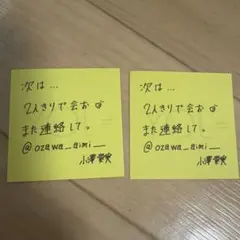 次は…
2人きりで会お
また連絡して。
@ozawa_aimi__
小澤愛実
次は…
2人きりで会お
また連絡して。
@ozawa_aimi__
小澤愛実